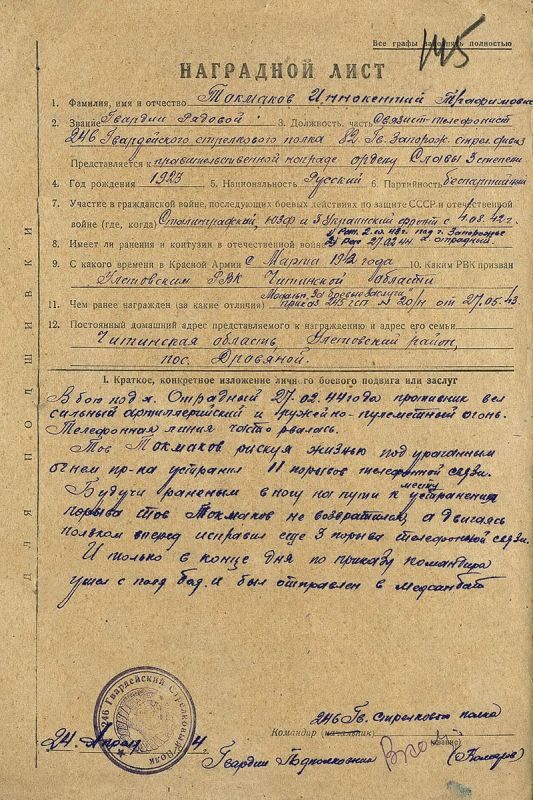 Все графы заполнять полностью
145
НАГРАДНОЙ ЛИСТ
1. Фамилия, имя и отчество Токмаков Иннокентий Трафимович
2. Звание Гвардии рядовой 3. Должность, часть Связист-телефонист
246 Гвардейского стрелкового полка 82 Гв. Запорож. стрел. дивиз
Представляется к правительственной награде ордену Славы 3 степени
4. Год рождения 1923 5. Национальность Русский 6. Партийность беспартийный
7. Участие в гражданской войне, последующих боевых действиях по защите СССР и отечественной
войне (где, когда) Сталинградский, ЮЗФ и 3 Украинский фронт с 4.08.42 г.
8. Имеет ли ранения и контузии в отечественной войне 1) Ран. 2.10.43 г. под г. Запорожье
2) Ран 27.02.44 х. Отрадный
9. С какого времени в Красной Армии с Марта 1942 года 10. Каким РВК призван
Улетовским РВК Читинской области
11. Чем ранее награжден (за какие отличия) Медаль „За боевые заслуги“
приказ 246 гсп № 20/н от 27.05.43.
12. Постоянный домашний адрес представляемого к награждению и адрес его семьи
Читинская область Улетовский район,
пос. Дровяной.
I. Краткое, конкретное изложение личного боевого подвига или заслуг
В бою под х. Отрадный 27.02.44 года противник вел
сильный артиллерийский и ружейно-пулеметный огонь.
Телефонная линия часто рвалась.
Тов Токмаков рискуя жизнью под ураганным
огнем пр-ка устранил 11 порывов телефонной связи.
Будучи раненым в ногу на пути к месту устранения
порыва тов Токмаков не возвратился, а двигаясь
ползком вперед исправил еще 3 порыва телефонной связи.
И только в конце дня по приказу командира
ушел с поля боя и был отправлен в медсанбат
246 Гвардейский Стрелковый Полк
Командир (начальник) 246 Гв. Стрелкового полка
24. Апрель 4.
Гвардии Подполковник (Комаров)
(звание)
ДЛЯ ПОДШИВКИ